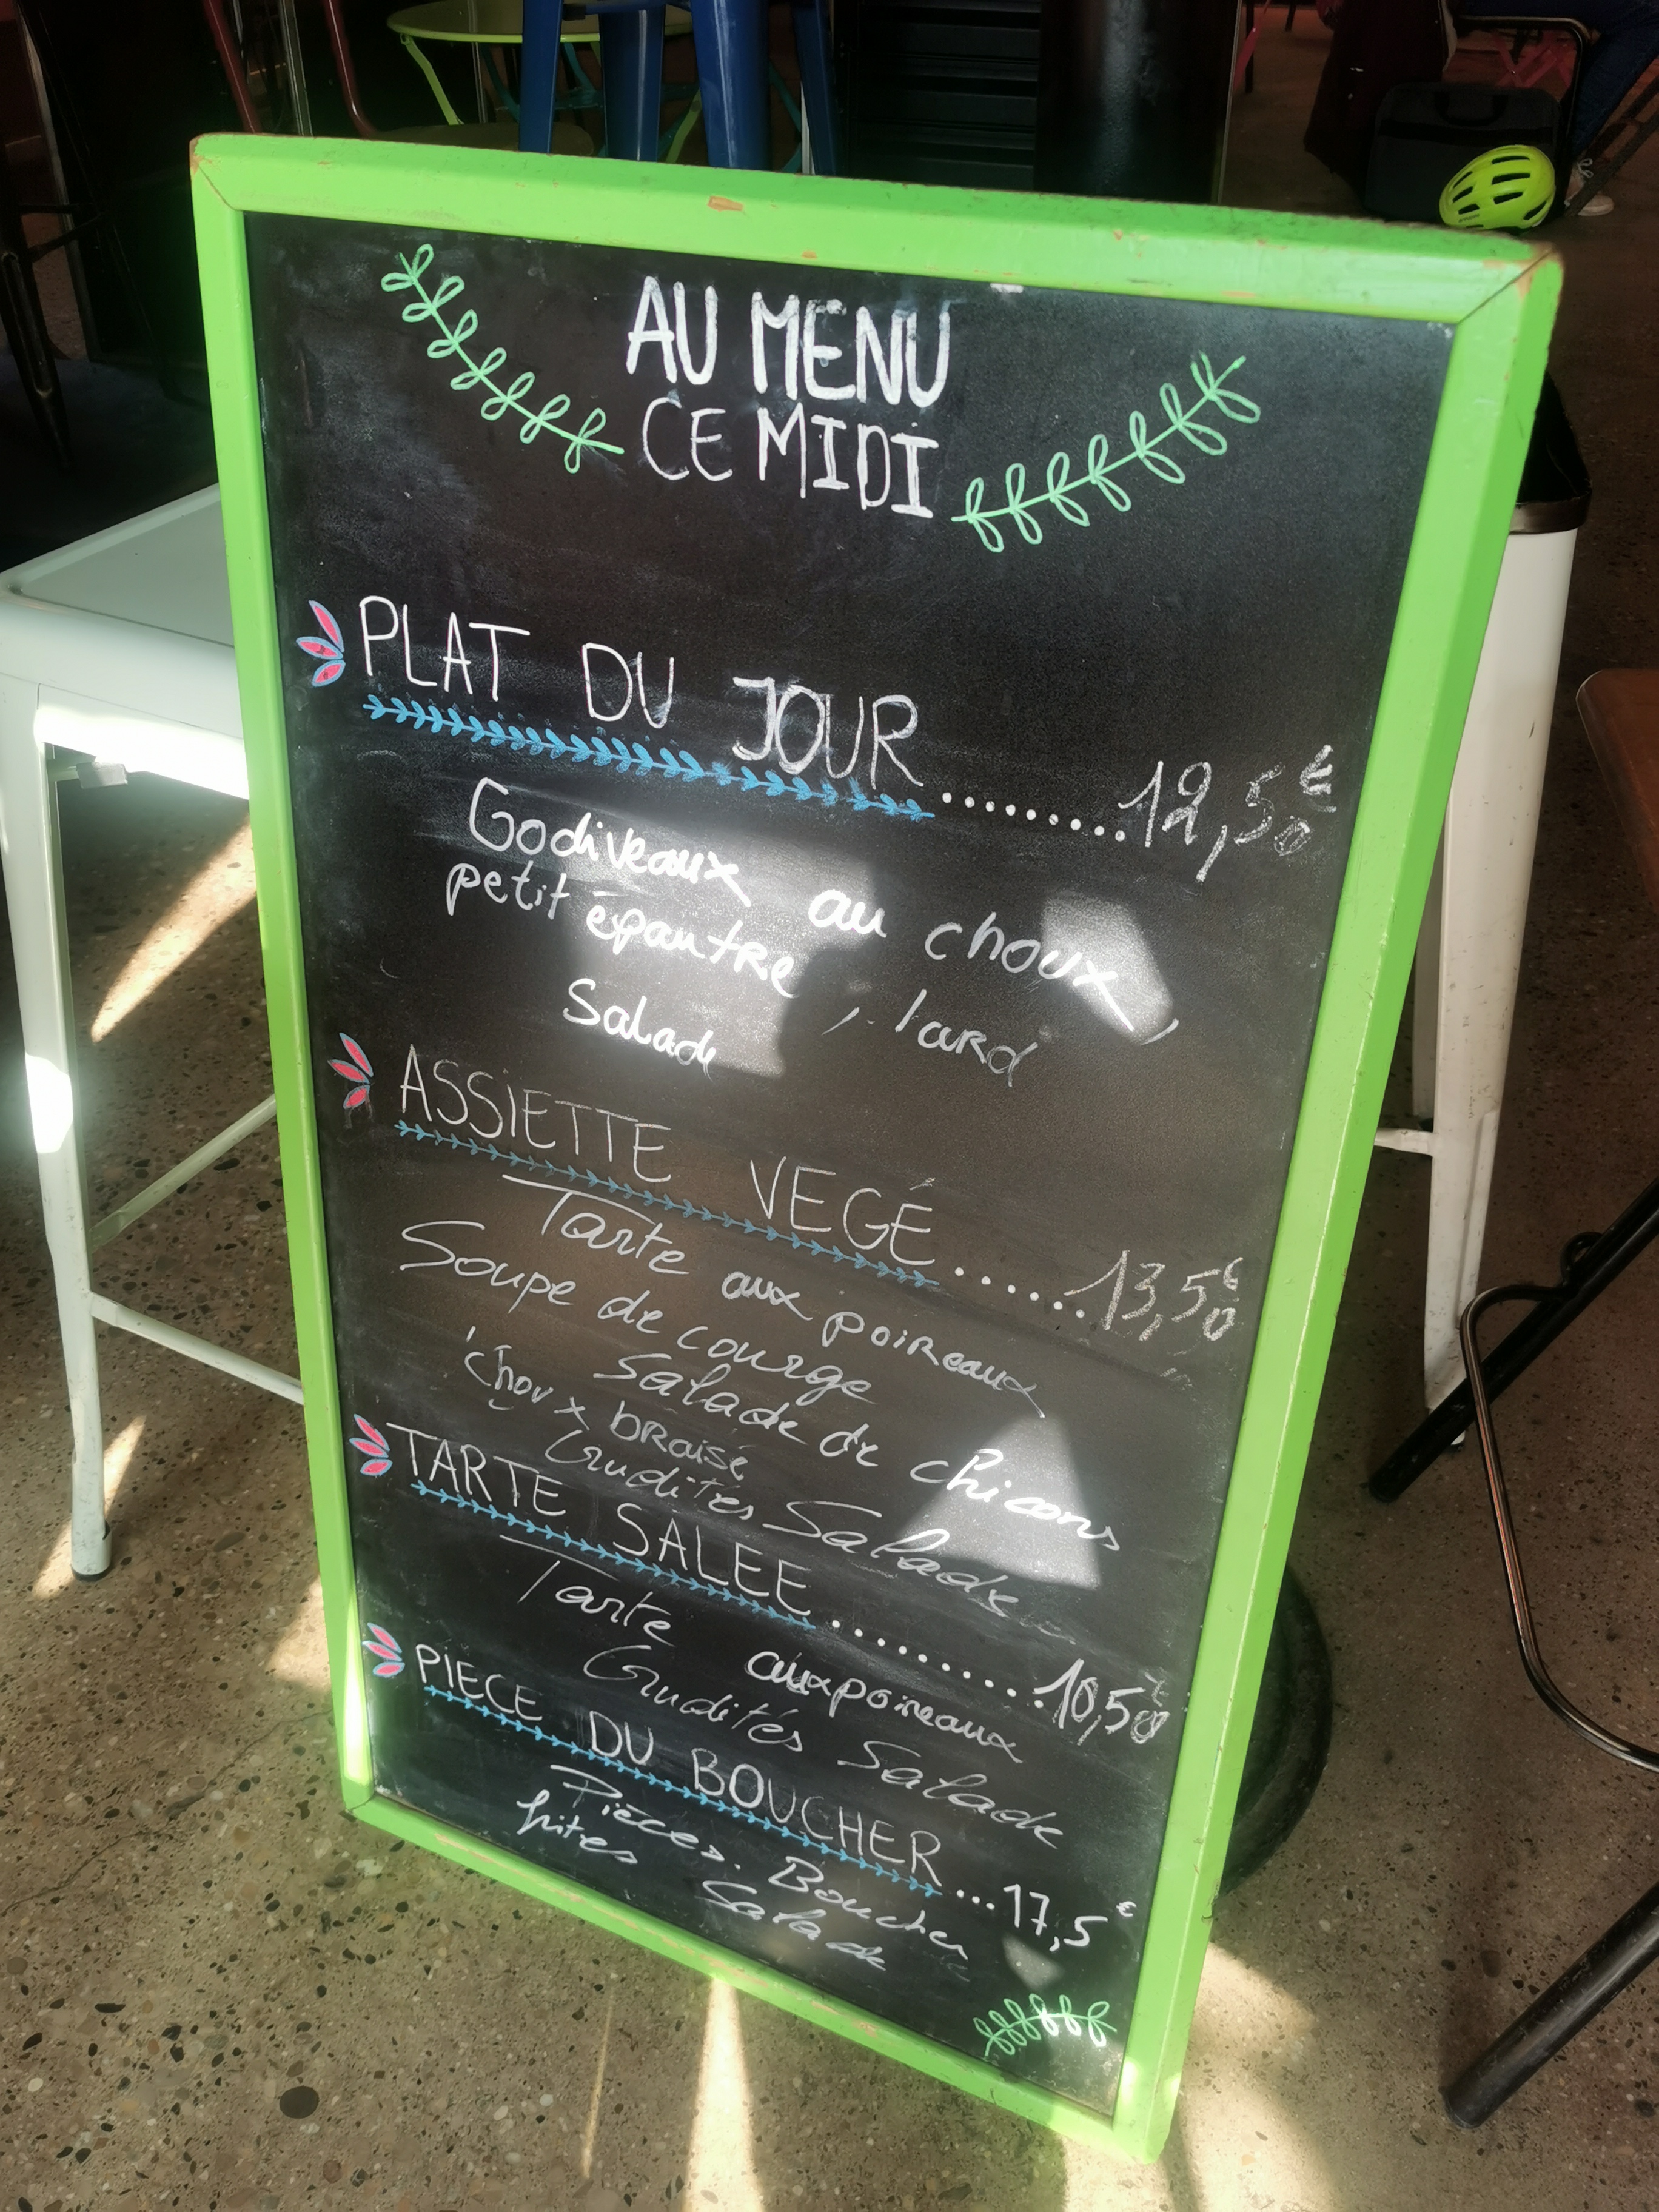 AU MENU
CE MIDI
PLAT DU JOUR ........ 12,50€
Godiveaux au choux,
petit épautre, lard
Salade
ASSIETTE VEGÉ ...... 13,50€
Tarte aux poireaux
Soupe de courge
Salade de chicons
choux braisé
Crudités Salade
TARTE SALEE .......... 10,50€
Tarte aux poireaux
Crudités Salade
PIECE DU BOUCHER ... 17,5€
Pièces. Boucher
frites Salade